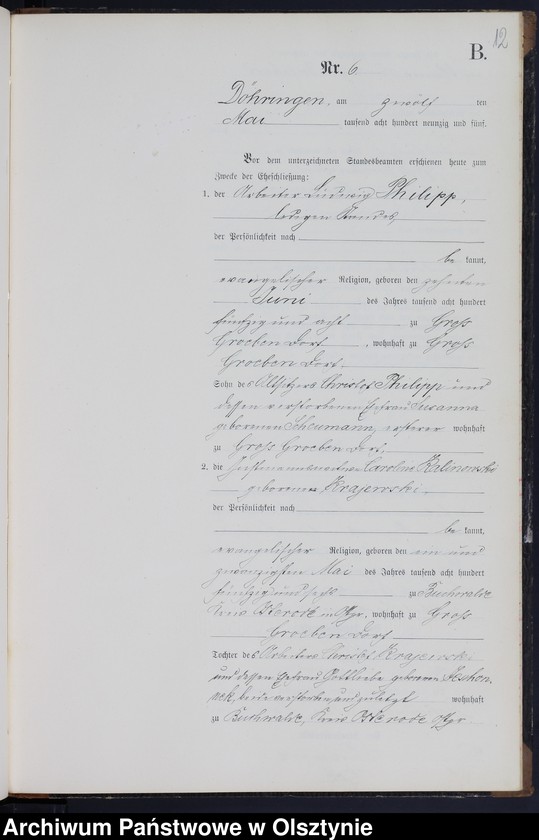 12
B.
Nr. 6
Döhringen, am zwölf ten
Mai tausend acht hundert neunzig und fünf.
Vor dem unterzeichneten Standesbeamten erschienen heute zum
Zwecke der Eheschließung:
1. der Arbeiter Ludwig Philipp,
ledigen Standes,
der Persönlichkeit nach
be kannt,
evangelischer Religion, geboren den zehnten
Juni des Jahres tausend acht hundert
fünfzig und acht zu Groß
Groeben Dorf, wohnhaft zu Groß
Groeben Dorf.
Sohn des Altsitzers Christof Philipp und
dessen verstorbenen Ehefrau Susanna
geborenen Scheumann, ersterer wohnhaft
zu Groß Groeben Dorf.
2. die Caroline Kalinowski
geborene Krajewski,
der Persönlichkeit nach
be kannt,
evangelischer Religion, geboren den ein und
zwanzigsten Mai des Jahres tausend acht hundert
fünfzig und sechs zu Buchwalde
Kreis Osterode o/Pr, wohnhaft zu Groß
Groeben Dorf
Tochter des Arbeiters Christof Krajewski
und dessen Ehefrau Gottliebe geborenen
beide verstorben, und zuletzt wohnhaft
zu Buchwalde, Kreis Osterode o/Pr
Archiwum Państwowe w Olsztynie